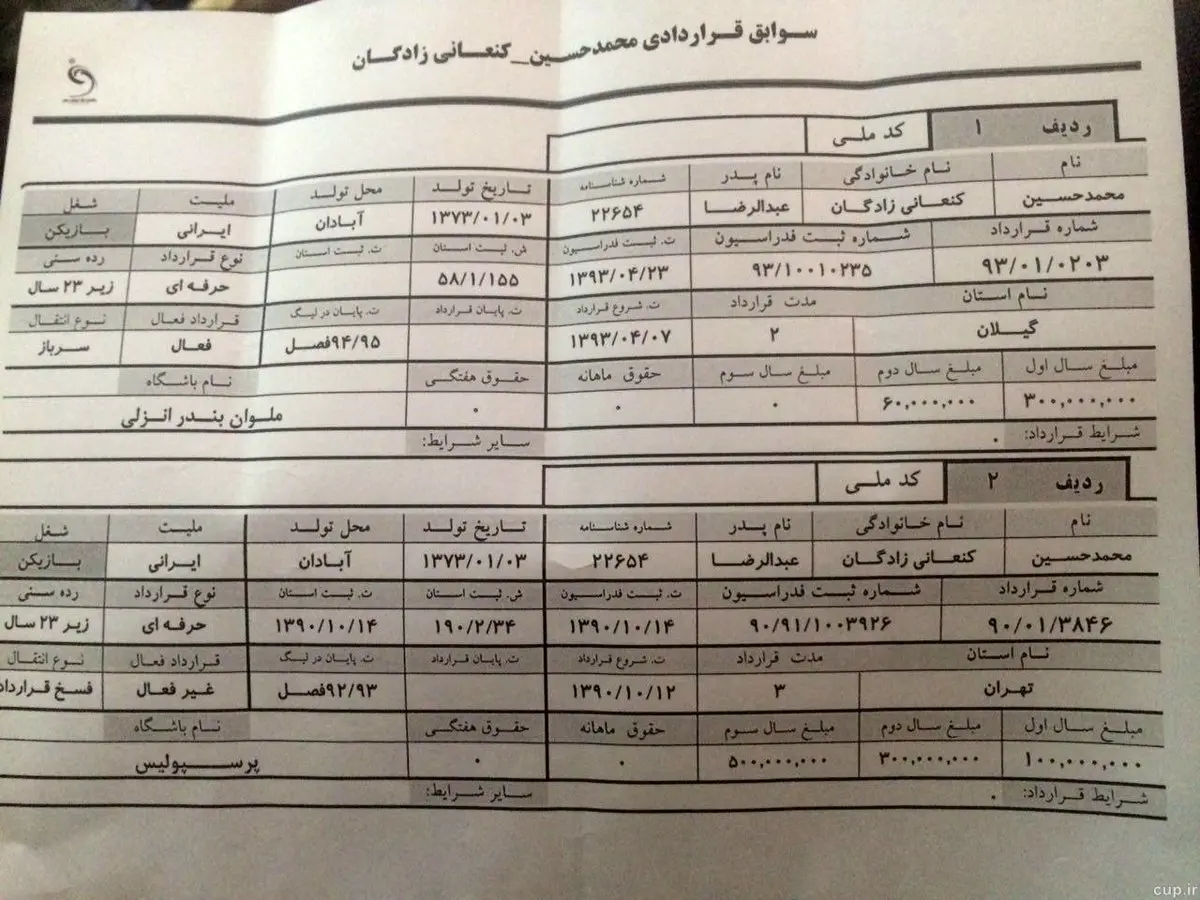 سوابق قراردادی محمدحسین_کنعانی زادگان
ردیف ۱ کد ملی
نام نام خانوادگی نام پدر شماره شناسنامه تاریخ تولد محل تولد ملیت شغل
محمدحسین کنعانی زادگان عبدالرضا ۲۲۶۵۴ ۱۳۷۳/۰۱/۰۳ آبادان ایرانی بازیکن
شماره قرارداد شماره ثبت فدراسیون ت. ثبت فدراسیون ش. ثبت استان ت. ثبت استان نوع قرارداد رده سنی
۹۳/۰۱/۰۲۰۳ ۹۳/۱۰۰۱۰۲۳۵ ۱۳۹۳/۰۴/۲۳ ۵۸/۱/۱۵۵ حرفه ای زیر ۲۳ سال
نام استان مدت قرارداد ت. شروع قرارداد ت. پایان قرارداد ت. پایان در لیگ قرارداد فعال نوع انتقال
گیلان ۲ ۱۳۹۳/۰۴/۰۷ ۹۴/۹۵فصل فعال سرباز
مبلغ سال اول مبلغ سال دوم مبلغ سال سوم حقوق ماهانه حقوق هفتگی نام باشگاه
۳۰۰,۰۰۰,۰۰۰ ۶۰,۰۰۰,۰۰۰ ۰ ۰ ۰ ملوان بندر انزلی
شرایط قرارداد: . سایر شرایط:
ردیف ۲ کد ملی
نام نام خانوادگی نام پدر شماره شناسنامه تاریخ تولد محل تولد ملیت شغل
محمدحسین کنعانی زادگان عبدالرضا ۲۲۶۵۴ ۱۳۷۳/۰۱/۰۳ آبادان ایرانی بازیکن
شماره قرارداد شماره ثبت فدراسیون ت. ثبت فدراسیون ش. ثبت استان ت. ثبت استان نوع قرارداد رده سنی
۹۰/۰۱/۳۸۴۶ ۹۰/۹۱/۱۰۰۳۹۲۶ ۱۳۹۰/۱۰/۱۴ ۱۹۰/۲/۳۴ ۱۳۹۰/۱۰/۱۴ حرفه ای زیر ۲۳ سال
نام استان مدت قرارداد ت. شروع قرارداد ت. پایان قرارداد ت. پایان در لیگ قرارداد فعال نوع انتقال
تهران ۳ ۱۳۹۰/۱۰/۱۲ ۹۲/۹۳فصل غیر فعال فسخ قرارداد
مبلغ سال اول مبلغ سال دوم مبلغ سال سوم حقوق ماهانه حقوق هفتگی نام باشگاه
۱۰۰,۰۰۰,۰۰۰ ۳۰۰,۰۰۰,۰۰۰ ۵۰۰,۰۰۰,۰۰۰ ۰ ۰ پرسپولیس
شرایط قرارداد: . سایر شرایط:
cup.ir